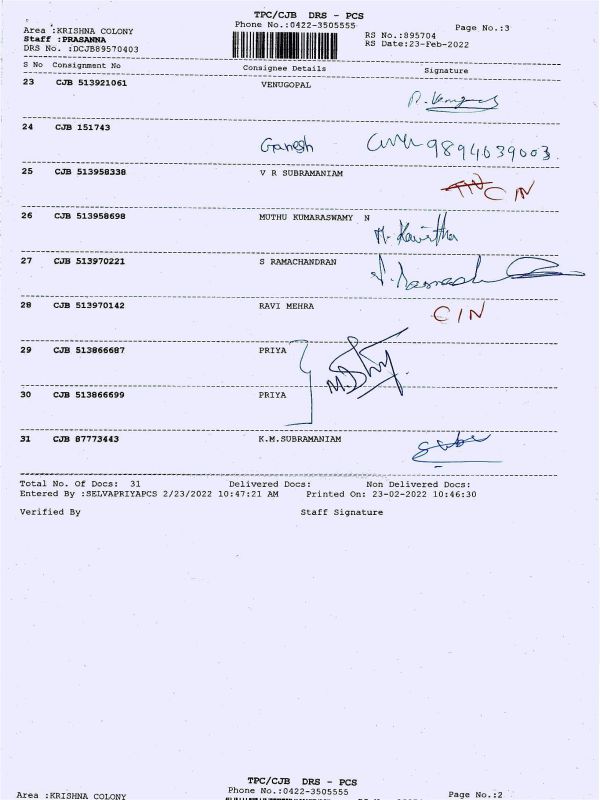 TPC/CJB DRS - PCS
Area :KRISHNA COLONY Phone No.:0422-3505555 Page No.:3
Staff :PRASANNA RS No.:895704
DRS No. :DCJB89570403 RS Date:23-Feb-2022
S No Consignment No Consignee Details Signature
23 CJB 513921061 VENUGOPAL
24 CJB 151743 Ganesh 9894639003
25 CJB 513958338 V R SUBRAMANIAM CIN
26 CJB 513958698 MUTHU KUMARASWAMY N M. Kavitha
27 CJB 513970221 S RAMACHANDRAN
28 CJB 513970142 RAVI MEHRA CIN
29 CJB 513866687 PRIYA
30 CJB 513866699 PRIYA
31 CJB 87773443 K.M.SUBRAMANIAM
Total No. Of Docs: 31 Delivered Docs: Non Delivered Docs:
Entered By :SELVAPRIYAPCS 2/23/2022 10:47:21 AM Printed On: 23-02-2022 10:46:30
Verified By Staff Signature
TPC/CJB DRS - PCS
Area :KRISHNA COLONY Phone No.:0422-3505555 Page No.:2